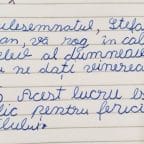 ulesemnatul, Ștefa
an, vă rog în cal
elelei al dumnea
u ne dați vinerea
Acest lucru e
lic pentru feric
lului.